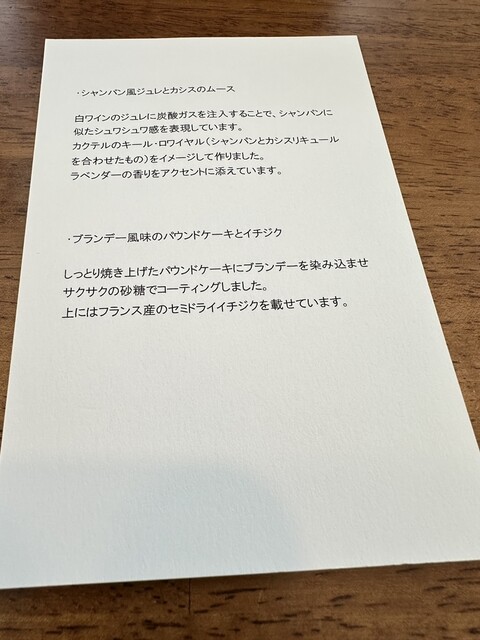 ・シャンパン風ジュレとカシスのムース
白ワインのジュレに炭酸ガスを注入することで、シャンパンに
似たシュワシュワ感を表現しています。
カクテルのキール・ロワイヤル(シャンパンとカシスリキュール
を合わせたもの)をイメージして作りました。
ラベンダーの香りをアクセントに添えています。
・ブランデー風味のパウンドケーキとイチジク
しっとり焼き上げたパウンドケーキにブランデーを染み込ませ
サクサクの砂糖でコーティングしました。
上にはフランス産のセミドライイチジクを載せています。